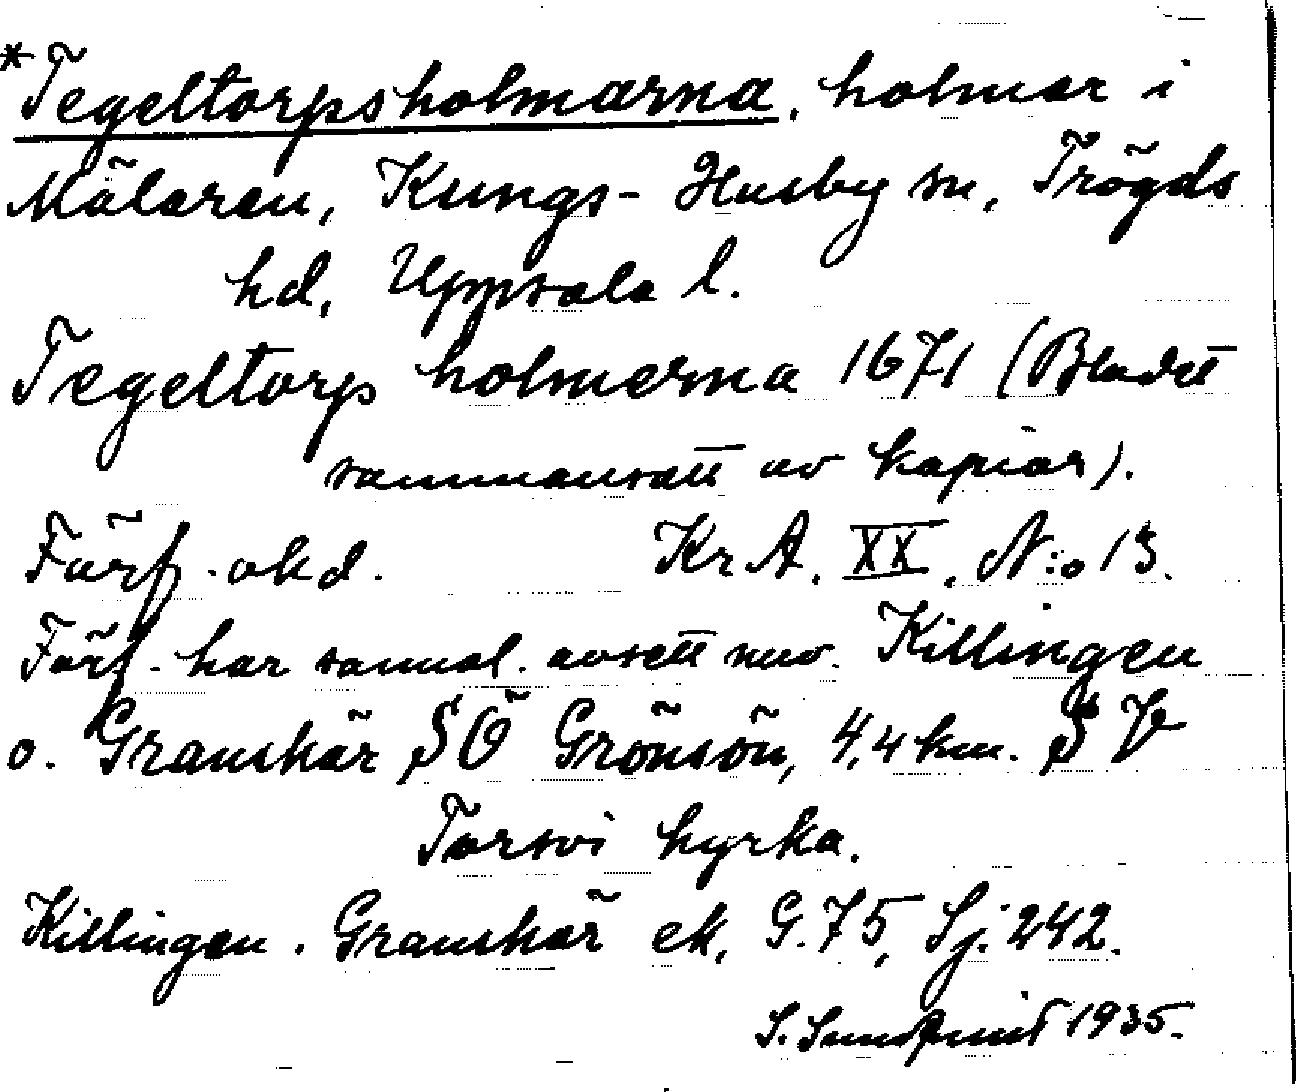 *Tegeltorpsholmarna, holmar i
Mälaren, Kungs-Husby sn, Trögds
hd, Uppsala l.
Tegeltorp holmerna 1671 (Bladet
sammansatt av kopior).
Förf. okd. Kr A. XX. N:o 13.
Förf. har sannol. avsett nuv. Killingen
o. Granskär SÖ Grönsön, 4,4 km. SV
Torsvi kyrka.
Killingen. Granskär ek, G. 75, Sj. 242.
S. Sundqvist 1935.